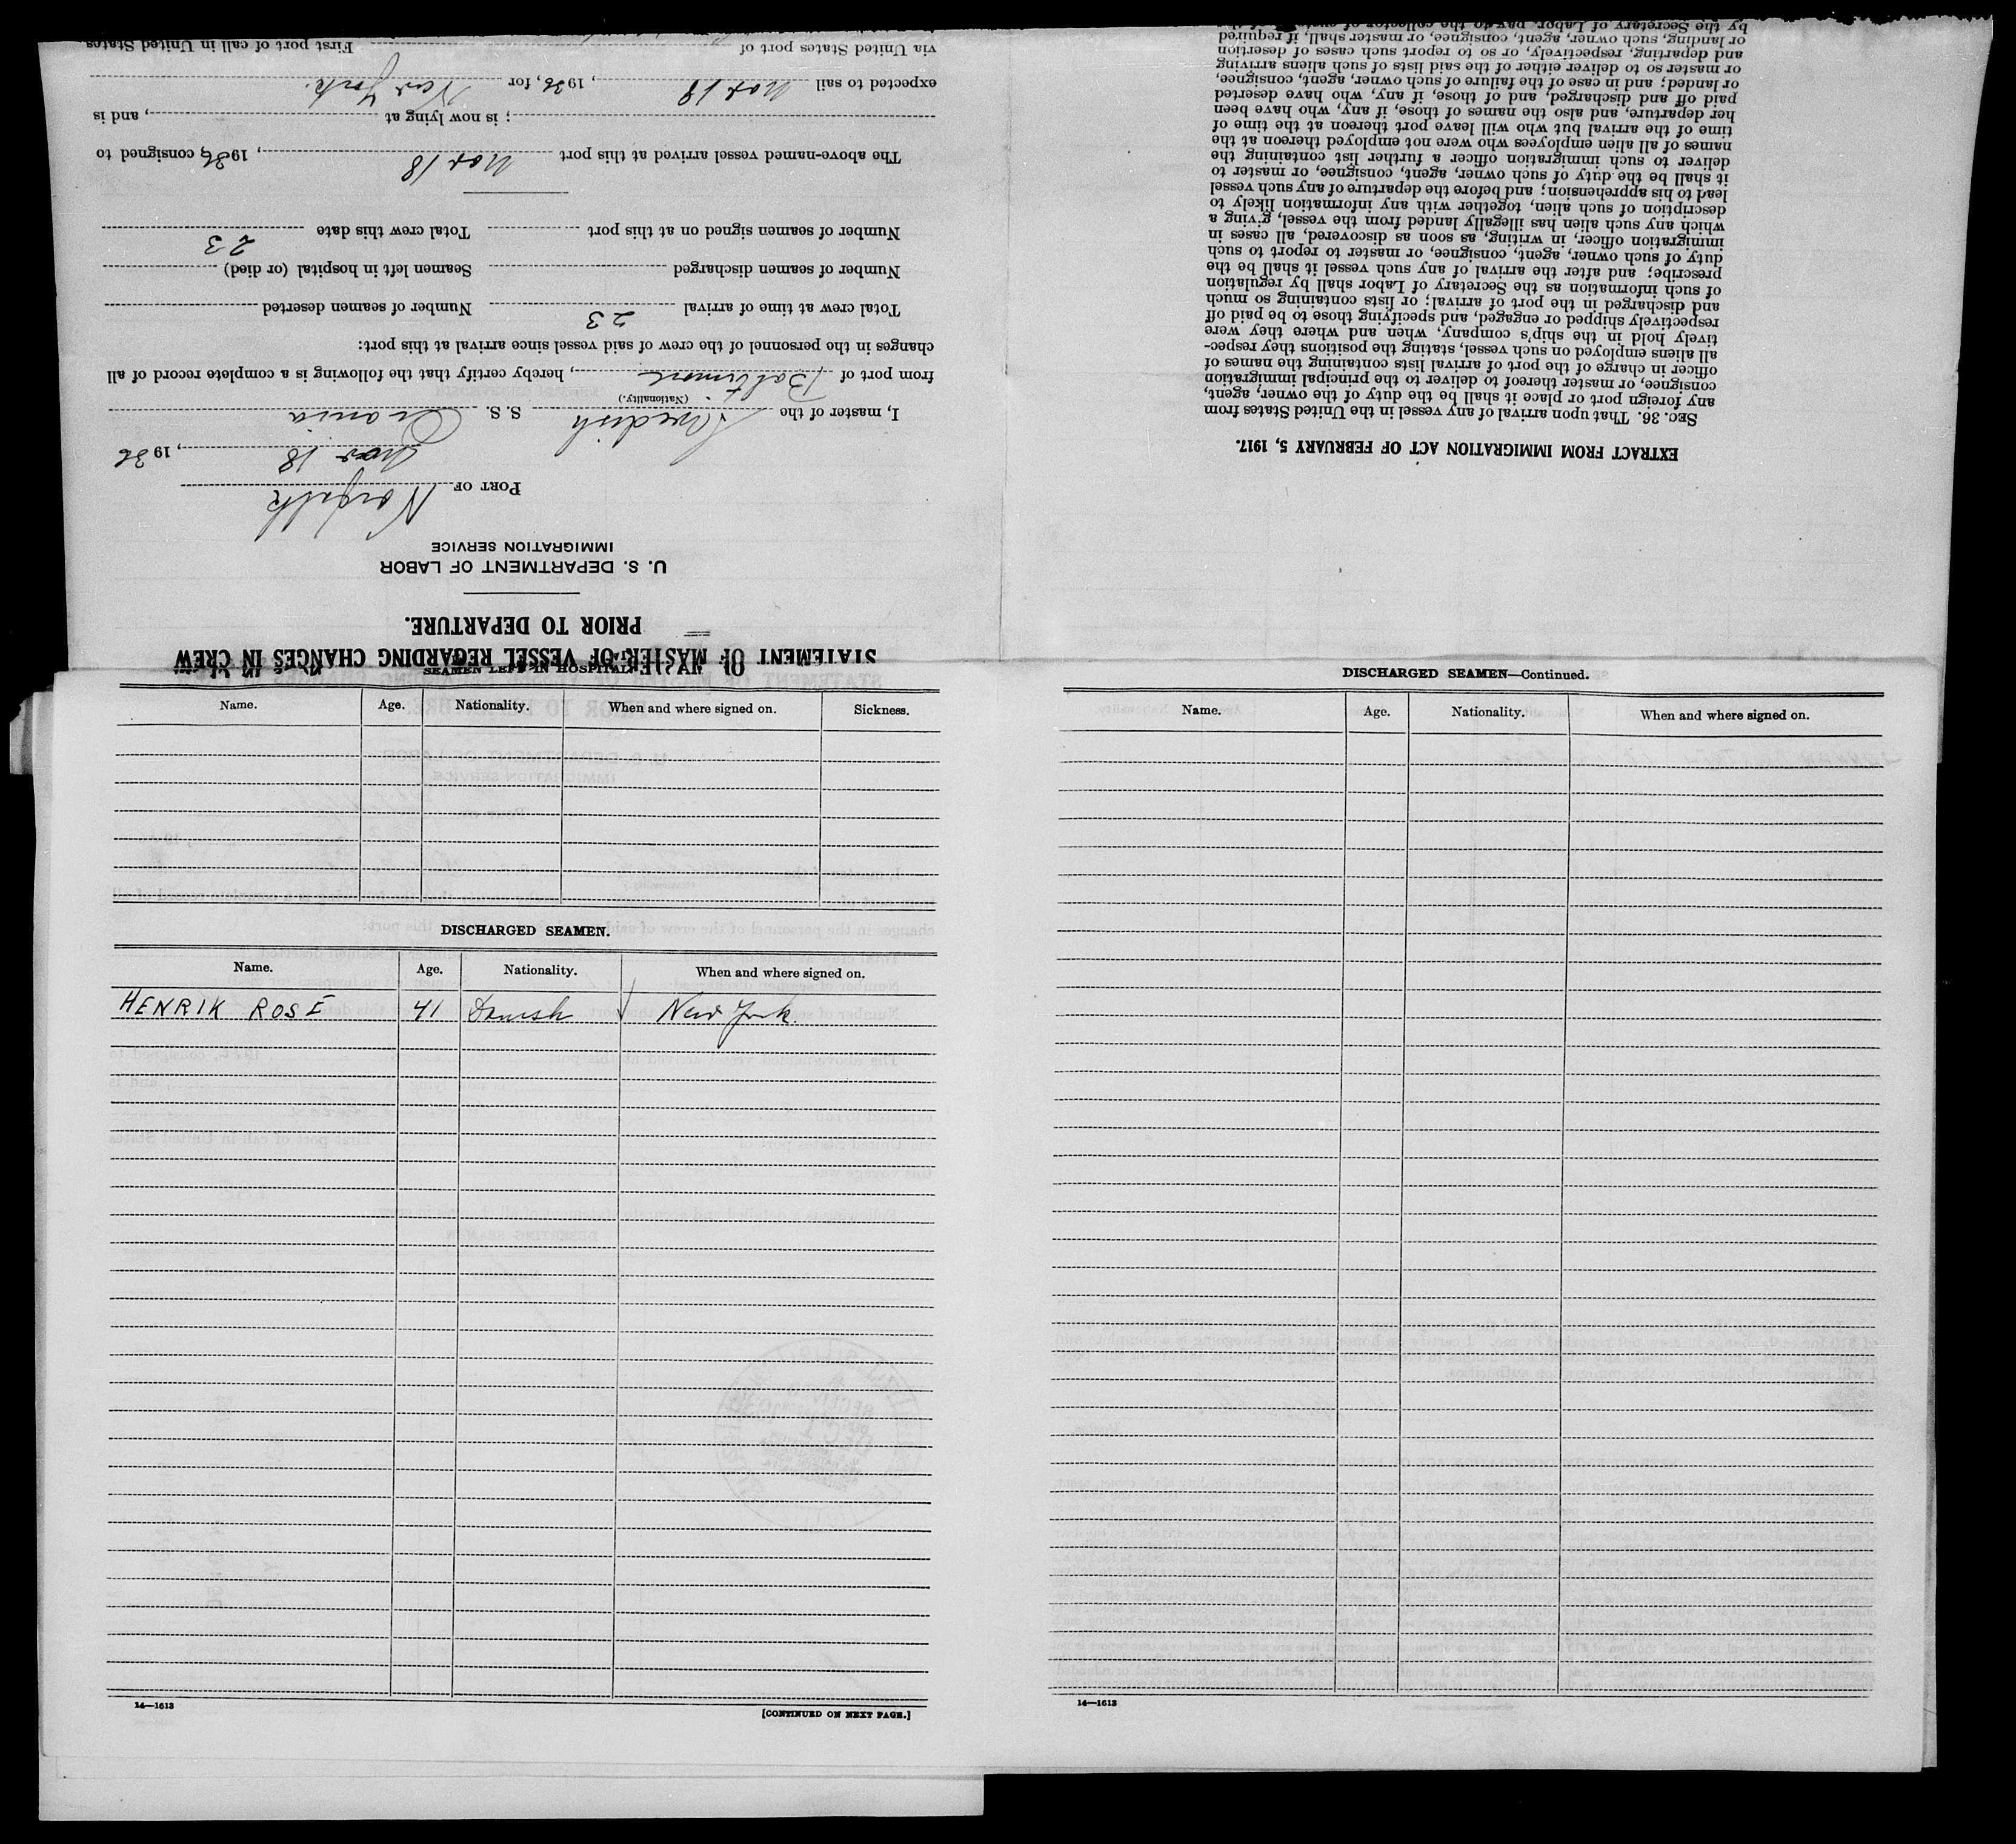 STATEMENT OF MASTER OF VESSEL REGARDING CHANGES IN CREW
PRIOR TO DEPARTURE.
U. S. DEPARTMENT OF LABOR
IMMIGRATION SERVICE
PORT OF Norfolk
Nov 18, 1936
I, master of the Swedish S. S. Urania
(Nationality.)
from port of Baltimore, hereby certify that the following is a complete record of all
changes in the personnel of the crew of said vessel since arrival at this port:
Total crew at time of arrival 23 Number of seamen deserted
Number of seamen discharged Seamen left in hospital (or died)
Number of seamen signed on at this port Total crew this date 23
The above-named vessel arrived at this port Nov 18, 1936, consigned to
; is now lying at , and is
expected to sail Nov 18, 1936, for New York.
via United States port of First port of call in United States
EXTRACT FROM IMMIGRATION ACT OF FEBRUARY 5, 1917.
SEC. 36. That upon arrival of any vessel in the United States from
any foreign port or place it shall be the duty of the owner, agent,
consignee, or master thereof to deliver to the principal immigration
officer in charge of the port of arrival lists containing the names of
all aliens employed on such vessel, stating the positions they respec-
tively hold in the ship's company, when and where they were
respectively shipped or engaged, and specifying those to be paid off
and discharged in the port of arrival; or lists containing so much
of such information as the Secretary of Labor shall by regulation
prescribe; and after the arrival of any such vessel it shall be the
duty of such owner, agent, consignee, or master to report to such
immigration officer, in writing, as soon as discovered, all cases in
which any such alien has illegally landed from the vessel, giving a
description of such alien, together with any information likely to
lead to his apprehension; and before the departure of any such vessel
it shall be the duty of such owner, agent, consignee, or master to
deliver to such immigration officer a further list containing the
names of all alien employees who were not employed thereon at the
time of the arrival but who will leave port thereon at the time of
her departure, and also the names of those, if any, who have been
paid off and discharged, and of those, if any, who have deserted
or landed; and in case of the failure of such owner, agent, consignee,
or master so to deliver either of the said lists of such aliens arriving
and departing, respectively, or so to report such cases of desertion
or landing, such owner, agent, consignee, or master shall, if required
by the Secretary of Labor, pay to the collector of customs of the
SEAMEN LEFT IN HOSPITAL
Name. Age. Nationality. When and where signed on. Sickness.
DISCHARGED SEAMEN.
Name. Age. Nationality. When and where signed on.
HENRIK ROSE 41 Danish √ New York.
14—1613
[CONTINUED ON NEXT PAGE.]
DISCHARGED SEAMEN—Continued.
Name. Age. Nationality. When and where signed on.
14—1613